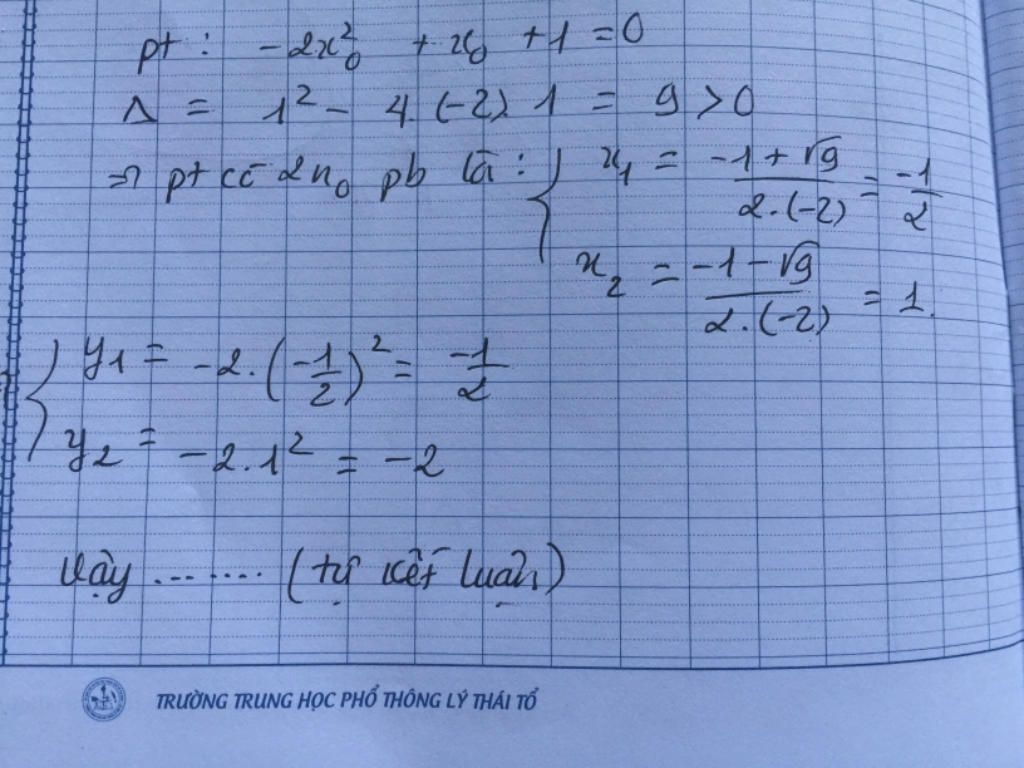 pt : -2x₀² + x₀ + 1 = 0
Δ = 1² - 4.(-2).1 = 9 > 0
⇒ pt có 2n₀ pb là : { x₁ = (-1+√9)/(2.(-2)) = -1/2
x₂ = (-1-√9)/(2.(-2)) = 1.
{ y₁ = -2.(-1/2)² = -1/2
y₂ = -2.1² = -2
Vậy ........ (tự kết luận)
TRƯỜNG TRUNG HỌC PHỔ THÔNG LÝ THÁI TỔ